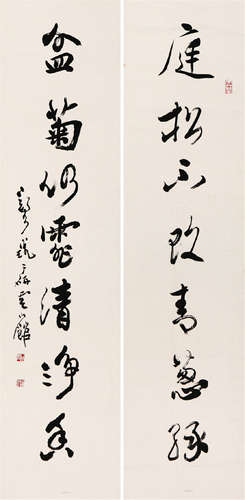 庭松不改青葱绿
盆菊仍霏清净香